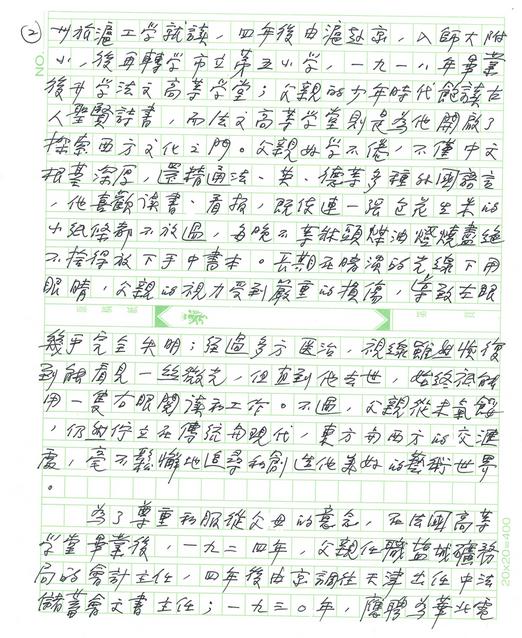 ②
廿於滬工学就讀，四年後由滬赴京，入師大附
小，後再轉学市立第五小学，一九一八年畢業
後升学法文高等学堂；父親的少年時代飽讀古
人聖賢詩書，而法文高等学堂則是為他開啟了
探索西方文化之門。父親好学不倦，不僅中文
根基深厚，還精通法、英、德等多種外國語言
，他喜歡读書、看报，既使連一張包花生米的
小紙條都不放過，每晚不等牀頭煤油燈燒盡絕
不捨得放下手中書本。長期在暗淡的光線下用
眼睛，父親的視力受到嚴重的損傷，導致左眼
幾乎完全失明；經過多方医治，視線雖然恢復
到能看見一丝微光，但直到他去世，始終祇能
用一隻右眼閱讀和工作。不過，父親從未氣餒
，仍然佇立在傳統与現代，東方与西方的交滙
處，毫不鬆懈地追尋和創造他美好的藝術世界
。
為了尊重和服從父母的意念，在法國高等
学堂畢業後，一九二四年，父親任職盐城礦務
局的會計主任，四年後由京調往天津出任中法
儲蓄會文書主任；一九三〇年，應聘為華北電
NO.
20x20=400